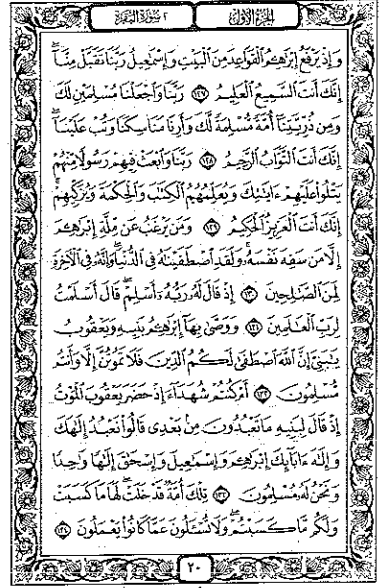 الجزء الأول
٢ سورة البقرة
وَإِذْ يَرْفَعُ إِبْرَٰهِـۧمُ ٱلْقَوَاعِدَ مِنَ ٱلْبَيْتِ وَإِسْمَٰعِيلُ رَبَّنَا تَقَبَّلْ مِنَّآ
إِنَّكَ أَنتَ ٱلسَّمِيعُ ٱلْعَلِيمُ ١٢٧ رَبَّنَا وَٱجْعَلْنَا مُسْلِمَيْنِ لَكَ
وَمِن ذُرِّيَّتِنَآ أُمَّةً مُّسْلِمَةً لَّكَ وَأَرِنَا مَنَاسِكَنَا وَتُبْ عَلَيْنَآ
إِنَّكَ أَنتَ ٱلتَّوَّابُ ٱلرَّحِيمُ ١٢٨ رَبَّنَا وَٱبْعَثْ فِيهِمْ رَسُولًا مِّنْهُمْ
يَتْلُوا۟ عَلَيْهِمْ ءَايَٰتِكَ وَيُعَلِّمُهُمُ ٱلْكِتَٰبَ وَٱلْحِكْمَةَ وَيُزَكِّيهِمْ
إِنَّكَ أَنتَ ٱلْعَزِيزُ ٱلْحَكِيمُ ١٢٩ وَمَن يَرْغَبُ عَن مِّلَّةِ إِبْرَٰهِـۧمَ
إِلَّا مَن سَفِهَ نَفْسَهُۥ وَلَقَدِ ٱصْطَفَيْنَٰهُ فِى ٱلدُّنْيَا وَإِنَّهُۥ فِى ٱلْءَاخِرَةِ
لَمِنَ ٱلصَّٰلِحِينَ ١٣٠ إِذْ قَالَ لَهُۥ رَبُّهُۥٓ أَسْلِمْ قَالَ أَسْلَمْتُ
لِرَبِّ ٱلْعَٰلَمِينَ ١٣١ وَوَصَّىٰ بِهَآ إِبْرَٰهِـۧمُ بَنِيهِ وَيَعْقُوبُ
يَٰبَنِىَّ إِنَّ ٱللَّهَ ٱصْطَفَىٰ لَكُمُ ٱلدِّينَ فَلَا تَمُوتُنَّ إِلَّا وَأَنتُم
مُّسْلِمُونَ ١٣٢ أَمْ كُنتُمْ شُهَدَآءَ إِذْ حَضَرَ يَعْقُوبَ ٱلْمَوْتُ
إِذْ قَالَ لِبَنِيهِ مَا تَعْبُدُونَ مِنۢ بَعْدِى قَالُوا۟ نَعْبُدُ إِلَٰهَكَ
وَإِلَٰهَ ءَابَآئِكَ إِبْرَٰهِـۧمَ وَإِسْمَٰعِيلَ وَإِسْحَٰقَ إِلَٰهًا وَٰحِدًا
وَنَحْنُ لَهُۥ مُسْلِمُونَ ١٣٣ تِلْكَ أُمَّةٌ قَدْ خَلَتْ لَهَا مَا كَسَبَتْ
وَلَكُم مَّا كَسَبْتُمْ وَلَا تُسْـَٔلُونَ عَمَّا كَانُوا۟ يَعْمَلُونَ ١٣٤
٢٠